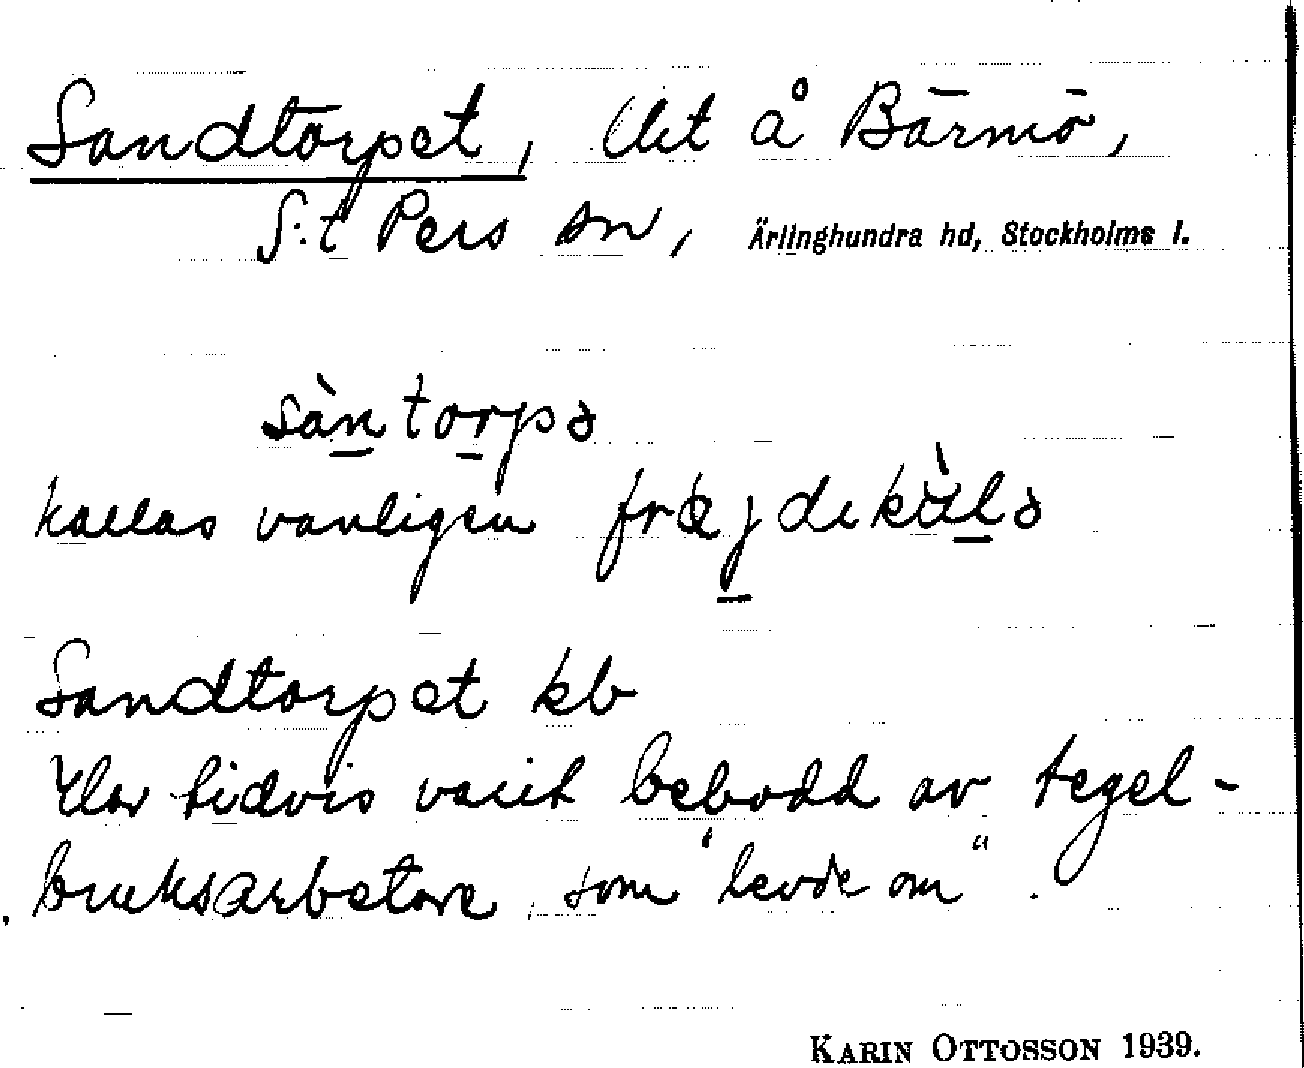 Sandtorpet, lht å Bärmö,
S:t Pers sn, Ärlinghundra hd, Stockholms l.
sàntorpə
kallas vanligen fræjdekùlə
Sandtorpet kb
Har tidvis varit bebodd av tegel-
bruksarbetare som "levde om".
KARIN OTTOSSON 1939.